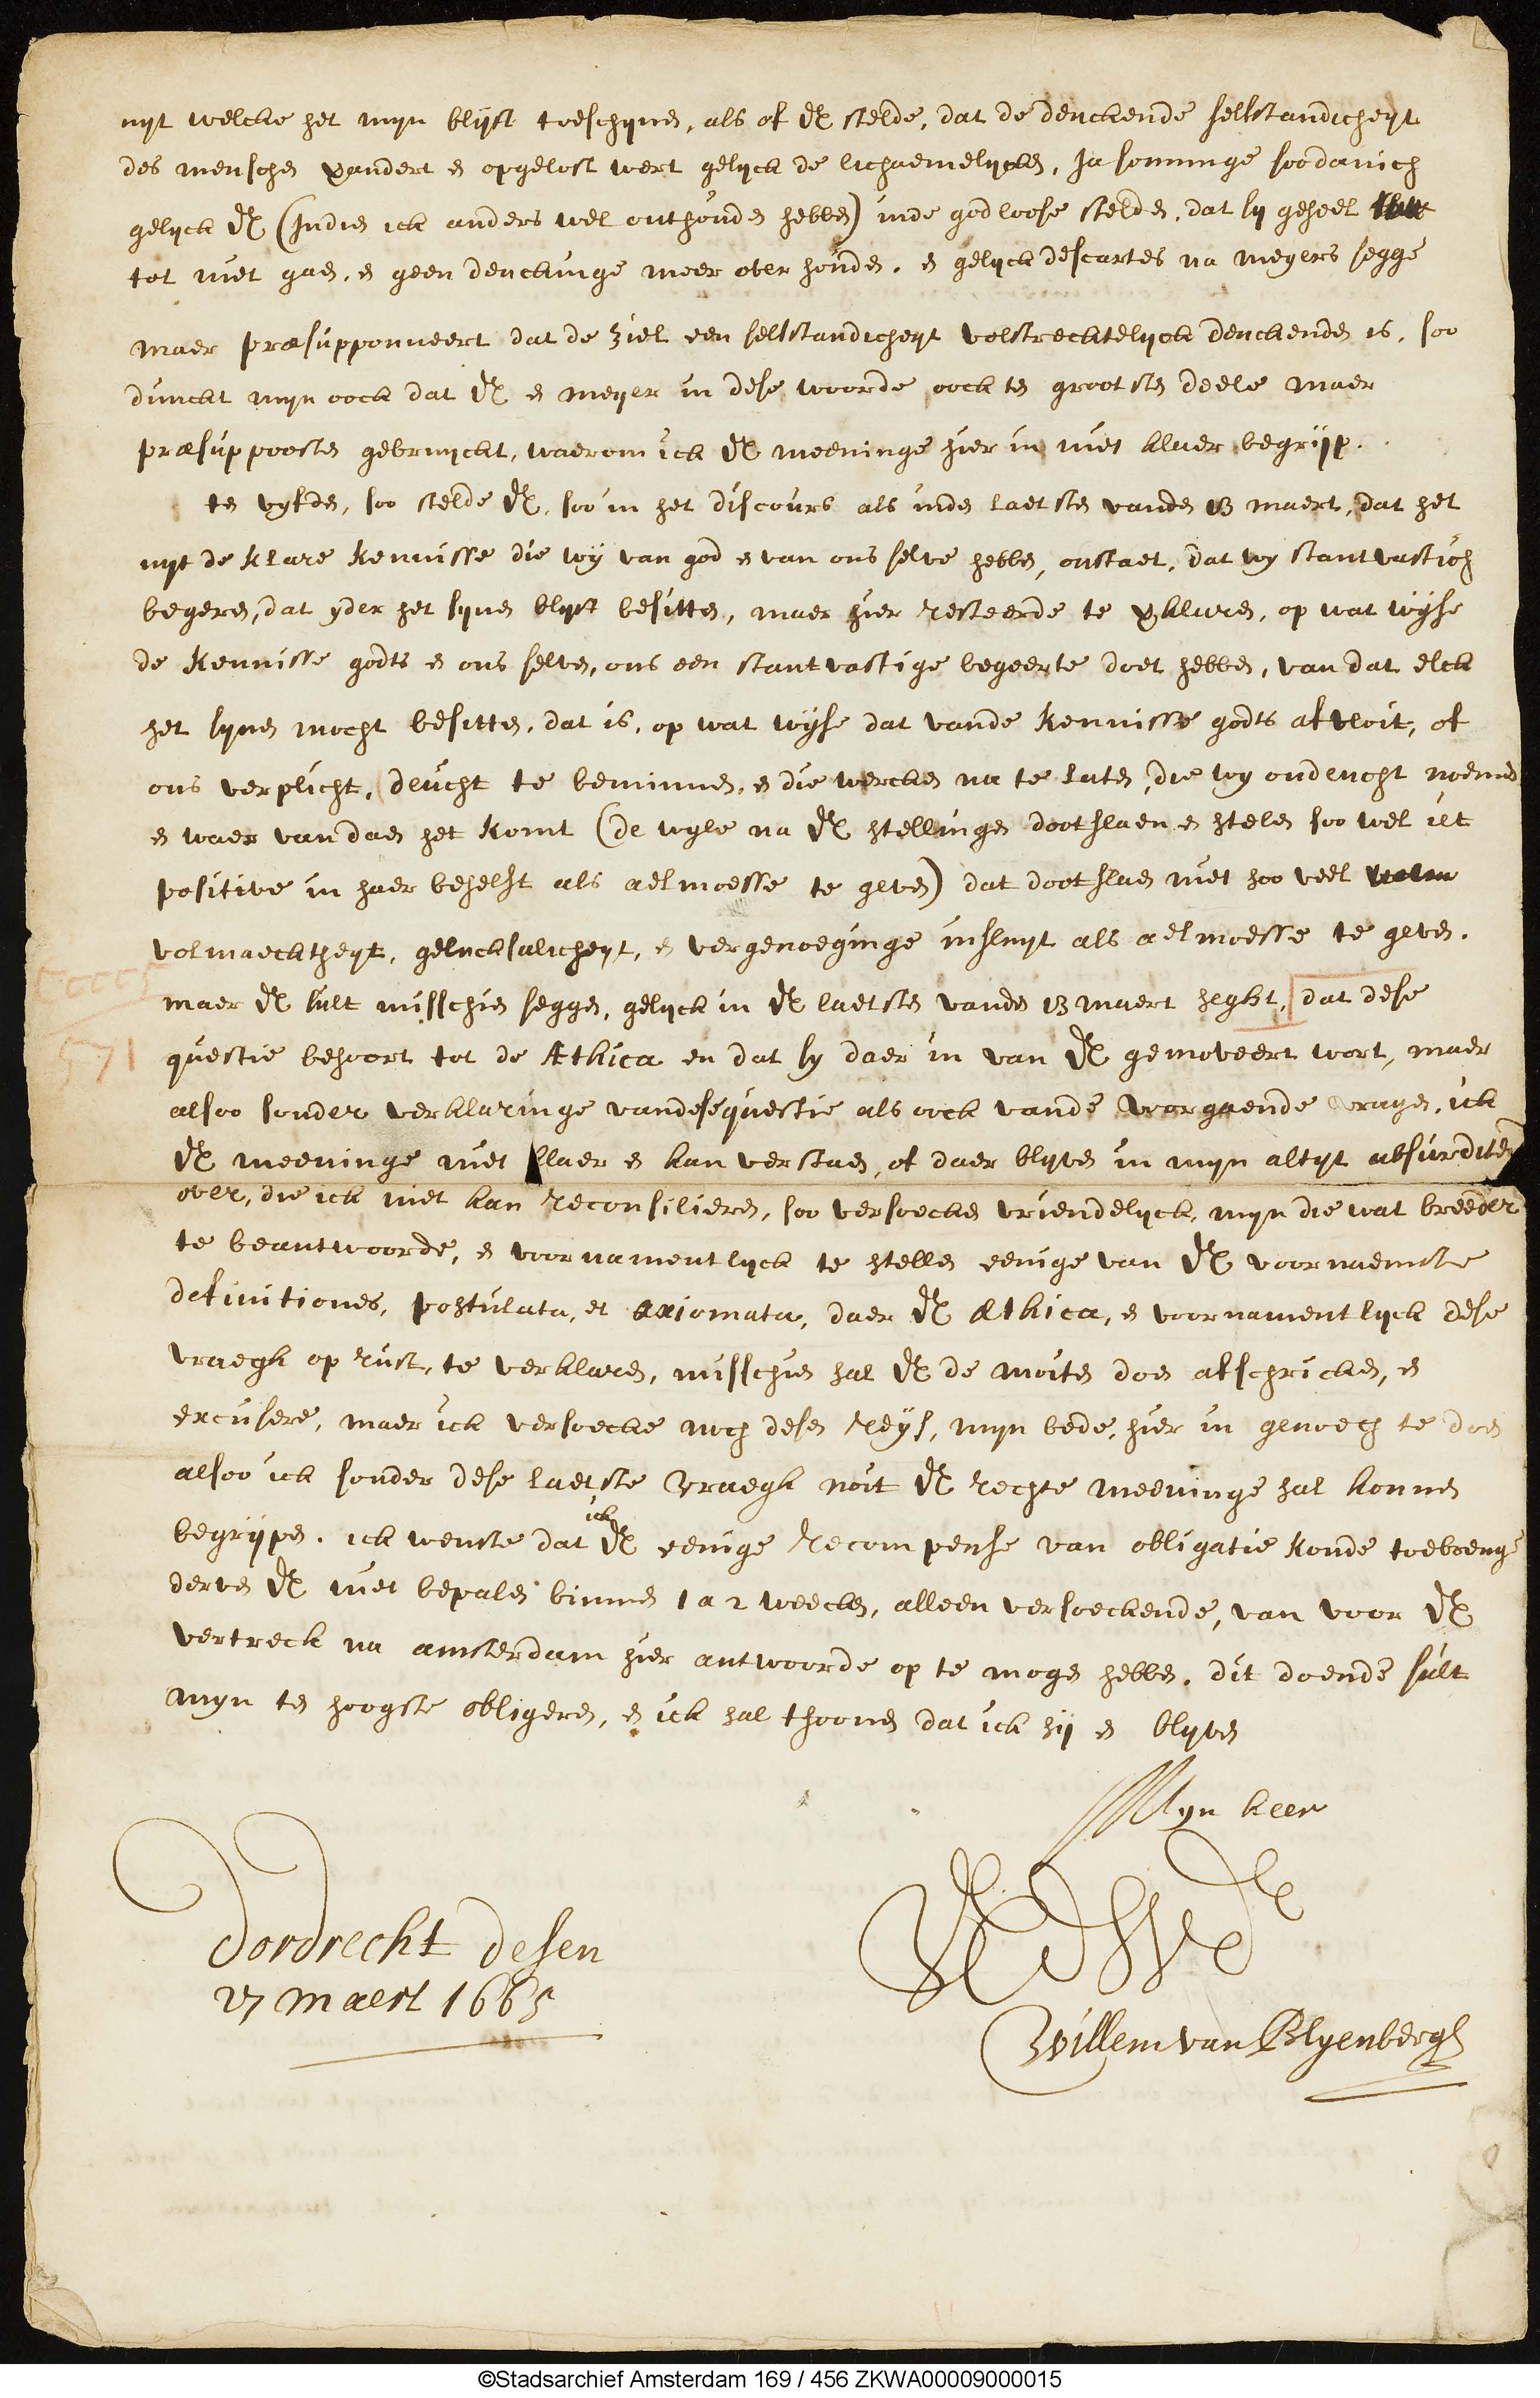 uyt welcke het myn blijkt toeschynen, als of UE stelde, dat de denckende selfstandicheyt
des menschen verandert en opgelost wert gelyck de lichaemelycken, Ja sommige soodanich
gelyck UE (Indien ick anders wel onthouden hebben) inde godloose stelden, dat sy geheel
tot niet gaen, en geen denckinge meer over houden. en gelyck descartes na meyers segge
maer præsupponneert dat de ziel een selfstandicheyt volstrecktelyck denckenden is, soo
dunckt myn oock dat UE en meyer in dese woorde oock ten grootsten deele maer
præsuppoosten gebruyckt, waerom ick UE meeninge hier in niet klaer begrijp.
ten vyfden, soo stelde UE, soo in het discours als inden laetsten vanden 13 maert, dat het
uyt de klare kennisse die wij van god en van ons selve hebben, onstaet, dat wy stantvastich
begeren, dat yder het synen blyft besitten, maer hier resteerde te verklaren, op wat wijse
de kennisse godts en ons selven, ons een stantvastige begeerte doet hebben, van dat elck
het synen mocht besitten, dat is, op wat wijse dat vande kennisse godts afvloit, of
ons verplicht, deucht te beminnen, en die wercken na te laten, die wy ondeucht noemen
en waer van daen het komt (de wyle na UE stellingen dootslaen en stelen soo wel iet
positive in haer behelst als aelmoesse te geven) dat dootslaen niet soo veel
volmaecktheyt, gelucksalicheyt, en vergenoeginge insluyt als aelmoesse te geven.
maer UE sult misschien seggen, gelyck in UE laetsten vanden 13 maert seght, dat dese
questie behoort tot de Æthica en dat sy daer in van UE gemoveert wort, maer
alsoo sonder verklaringe vandese questie als oock vande voorgaende vragen, ick
UE meeninge niet klaer en kan verstaen, of daer blyven in myn altyt absurditeyten
over, die ick niet kan reconsilieren, soo versoecken vriendelyck, myn die wat breeder
te beantwoorde, en voornamentlyck te stellen eenige van UE voornaemste
definitiones, postulata, et axiomata, daer UE Æthica, en voornamentlyck dese
vraegh op rust, te verklaren, misschien sal UE de moiten doen afschricken, en
excusere, maer ick versoecke noch desen reijs, myn bede, hier in genoech te doen
alsoo ick sonder dese laetste vraegh noit UE rechte meeninge sal konnen
begrijpen. ick wenste dat ick UE eenige recompense van obligatie konde toebrenge
derven UE niet bepalen binnen 1 a 2 weecken, alleen versoeckende, van voor UE
vertreck na amsterdam hier antwoorde op te mogen hebben. dit doende sult
myn ten hoogste obligeren, en ick sal thoonen dat ick sij en blyven
Myn heer
Dordrecht desen
27 maert 1665
Willem van Blyenbergh
571
©Stadsarchief Amsterdam 169 / 456 ZKWA00009000015